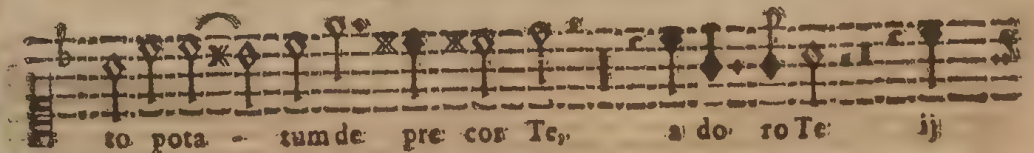 to pota - tum de pre cor Te, a do ro Te ij